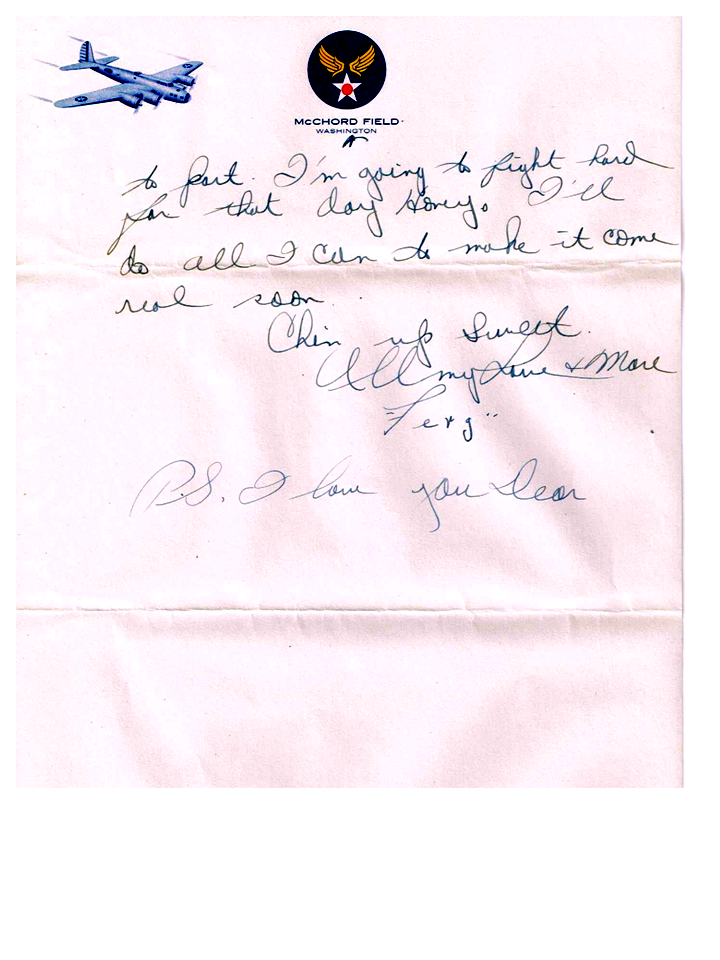 McCHORD FIELD
WASHINGTON
to part. I'm going to fight hard
for that day Honey. I'll
do all I can to make it come
real soon.
Chin up Sweet.
All my Love & More
"Ferg"
P.S. I love you Dear